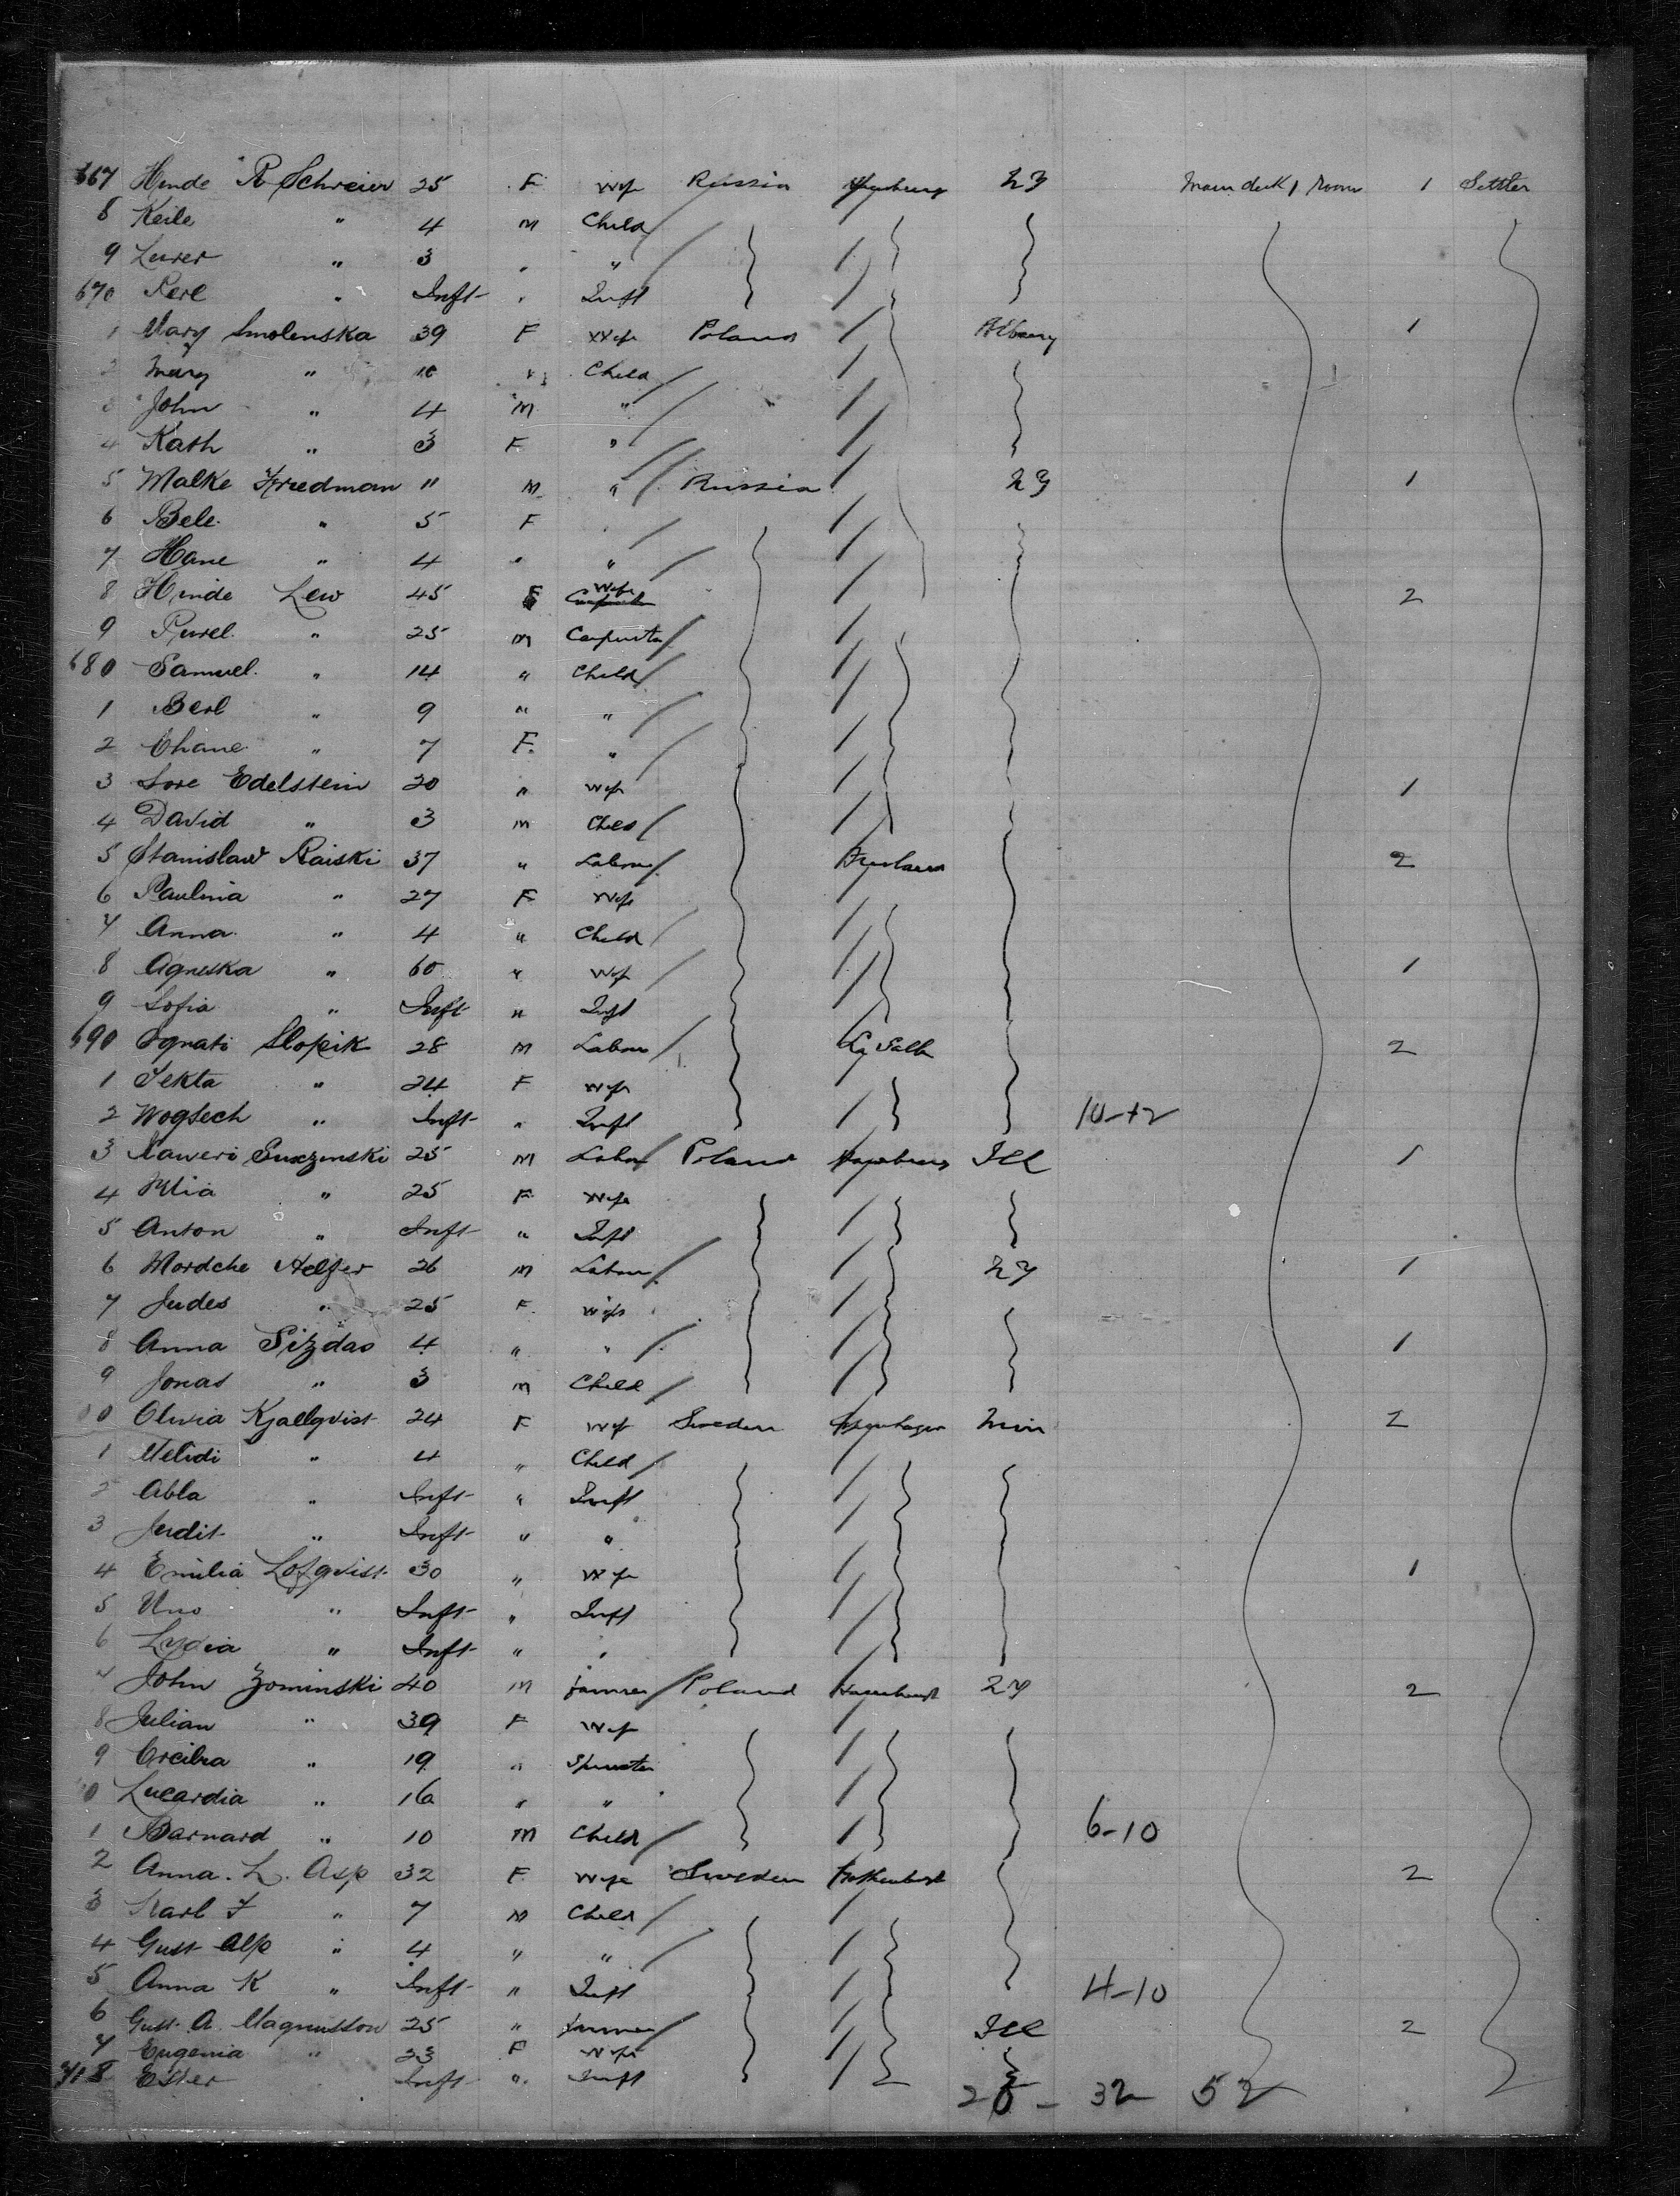 667 Hinde R Schreier 25 F Wife Russia Hamburg NY Main deck 1 Room 1 Settler
8 Keile " 4 M Child
9 Leurer " 3 " "
670 Perl " Inft " Inft
1 Mary Smolenska 39 F Wife Poland Albany 1
2 Mary " 10 " Child
3 John " 4 M "
4 Kath " 3 F "
5 Malke Friedman 11 M " Russia NY 1
6 Bele " 5 F
7 Hane " 4 " "
8 Hinde Lew 45 F Wife 2
9 Rurel " 25 M Carpenter
680 Samuel " 14 " Child
1 Berl " 9 " "
2 Chane " 7 F "
3 Sore Edelstein 20 " Wife 1
4 David " 3 M Child
5 Stanislaw Raiski 37 " Labour 2
6 Paulina " 27 F Wife
7 Anna " 4 " Child
8 Agneska " 60 " Wife 1
9 Sofia " Inft " Inft
690 Ognati Slopik 28 M Labour 2
1 Tekta " 24 F Wife
2 Wogsech " Inft " Inft 10-12
3 Xaweri Suxzinski 25 M Labour Poland Hamburg Ill 1
4 Julia " 25 F Wife
5 Anton " Inft " Inft
6 Mordche Helfer 26 M Labour NY 1
7 Judes " 25 F Wife
8 Anna Sizdas 4 " " 1
9 Jonas " 3 M Child
00 Olivia Kjallqvist 24 F Wife Sweden Copenhagen Min 2
1 Melidi " 4 " Child
2 Abla " Inft " Inft
3 Judit " Inft " "
4 Emilia Lofqvist 30 " Wife 1
5 Uno " Inft " Inft
6 Lydia " Inft " "
7 John Zominski 40 M farmer Poland Hamburg NY 2
8 Julian " 39 F Wife
9 Crecilia " 19 " Spinster
10 Lucardia " 16 " "
1 Barnard " 10 M Child 6-10
2 Anna. L. Asp 32 F Wife Sweden Gothenburg 2
3 Karl F " 7 M Child
4 Gust Alf " 4 " "
5 Anna K " Inft " Inft 4-10
6 Gust. A. Magnusson 25 " farmer Ill 2
7 Eugenia " 23 F Wife
718 Ester Inft " Inft
20 - 32 52